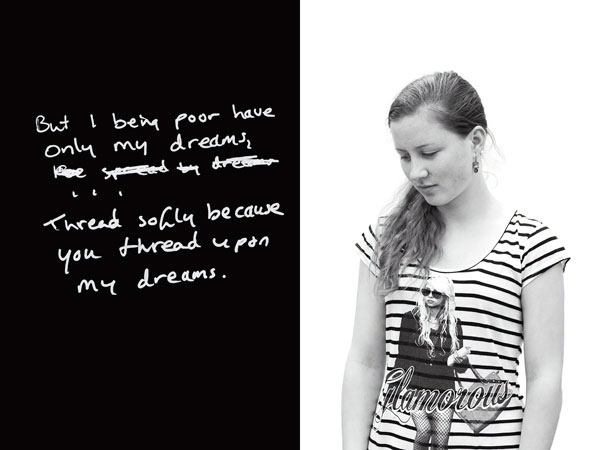 But I being poor have
only my dreams,
spread my dreams
. . .
Thread softly because
you thread upon
my dreams.
Glamorous